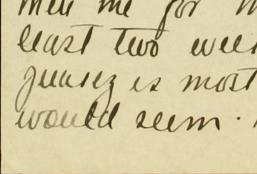 me for
least two
Juarez is most
would seem.